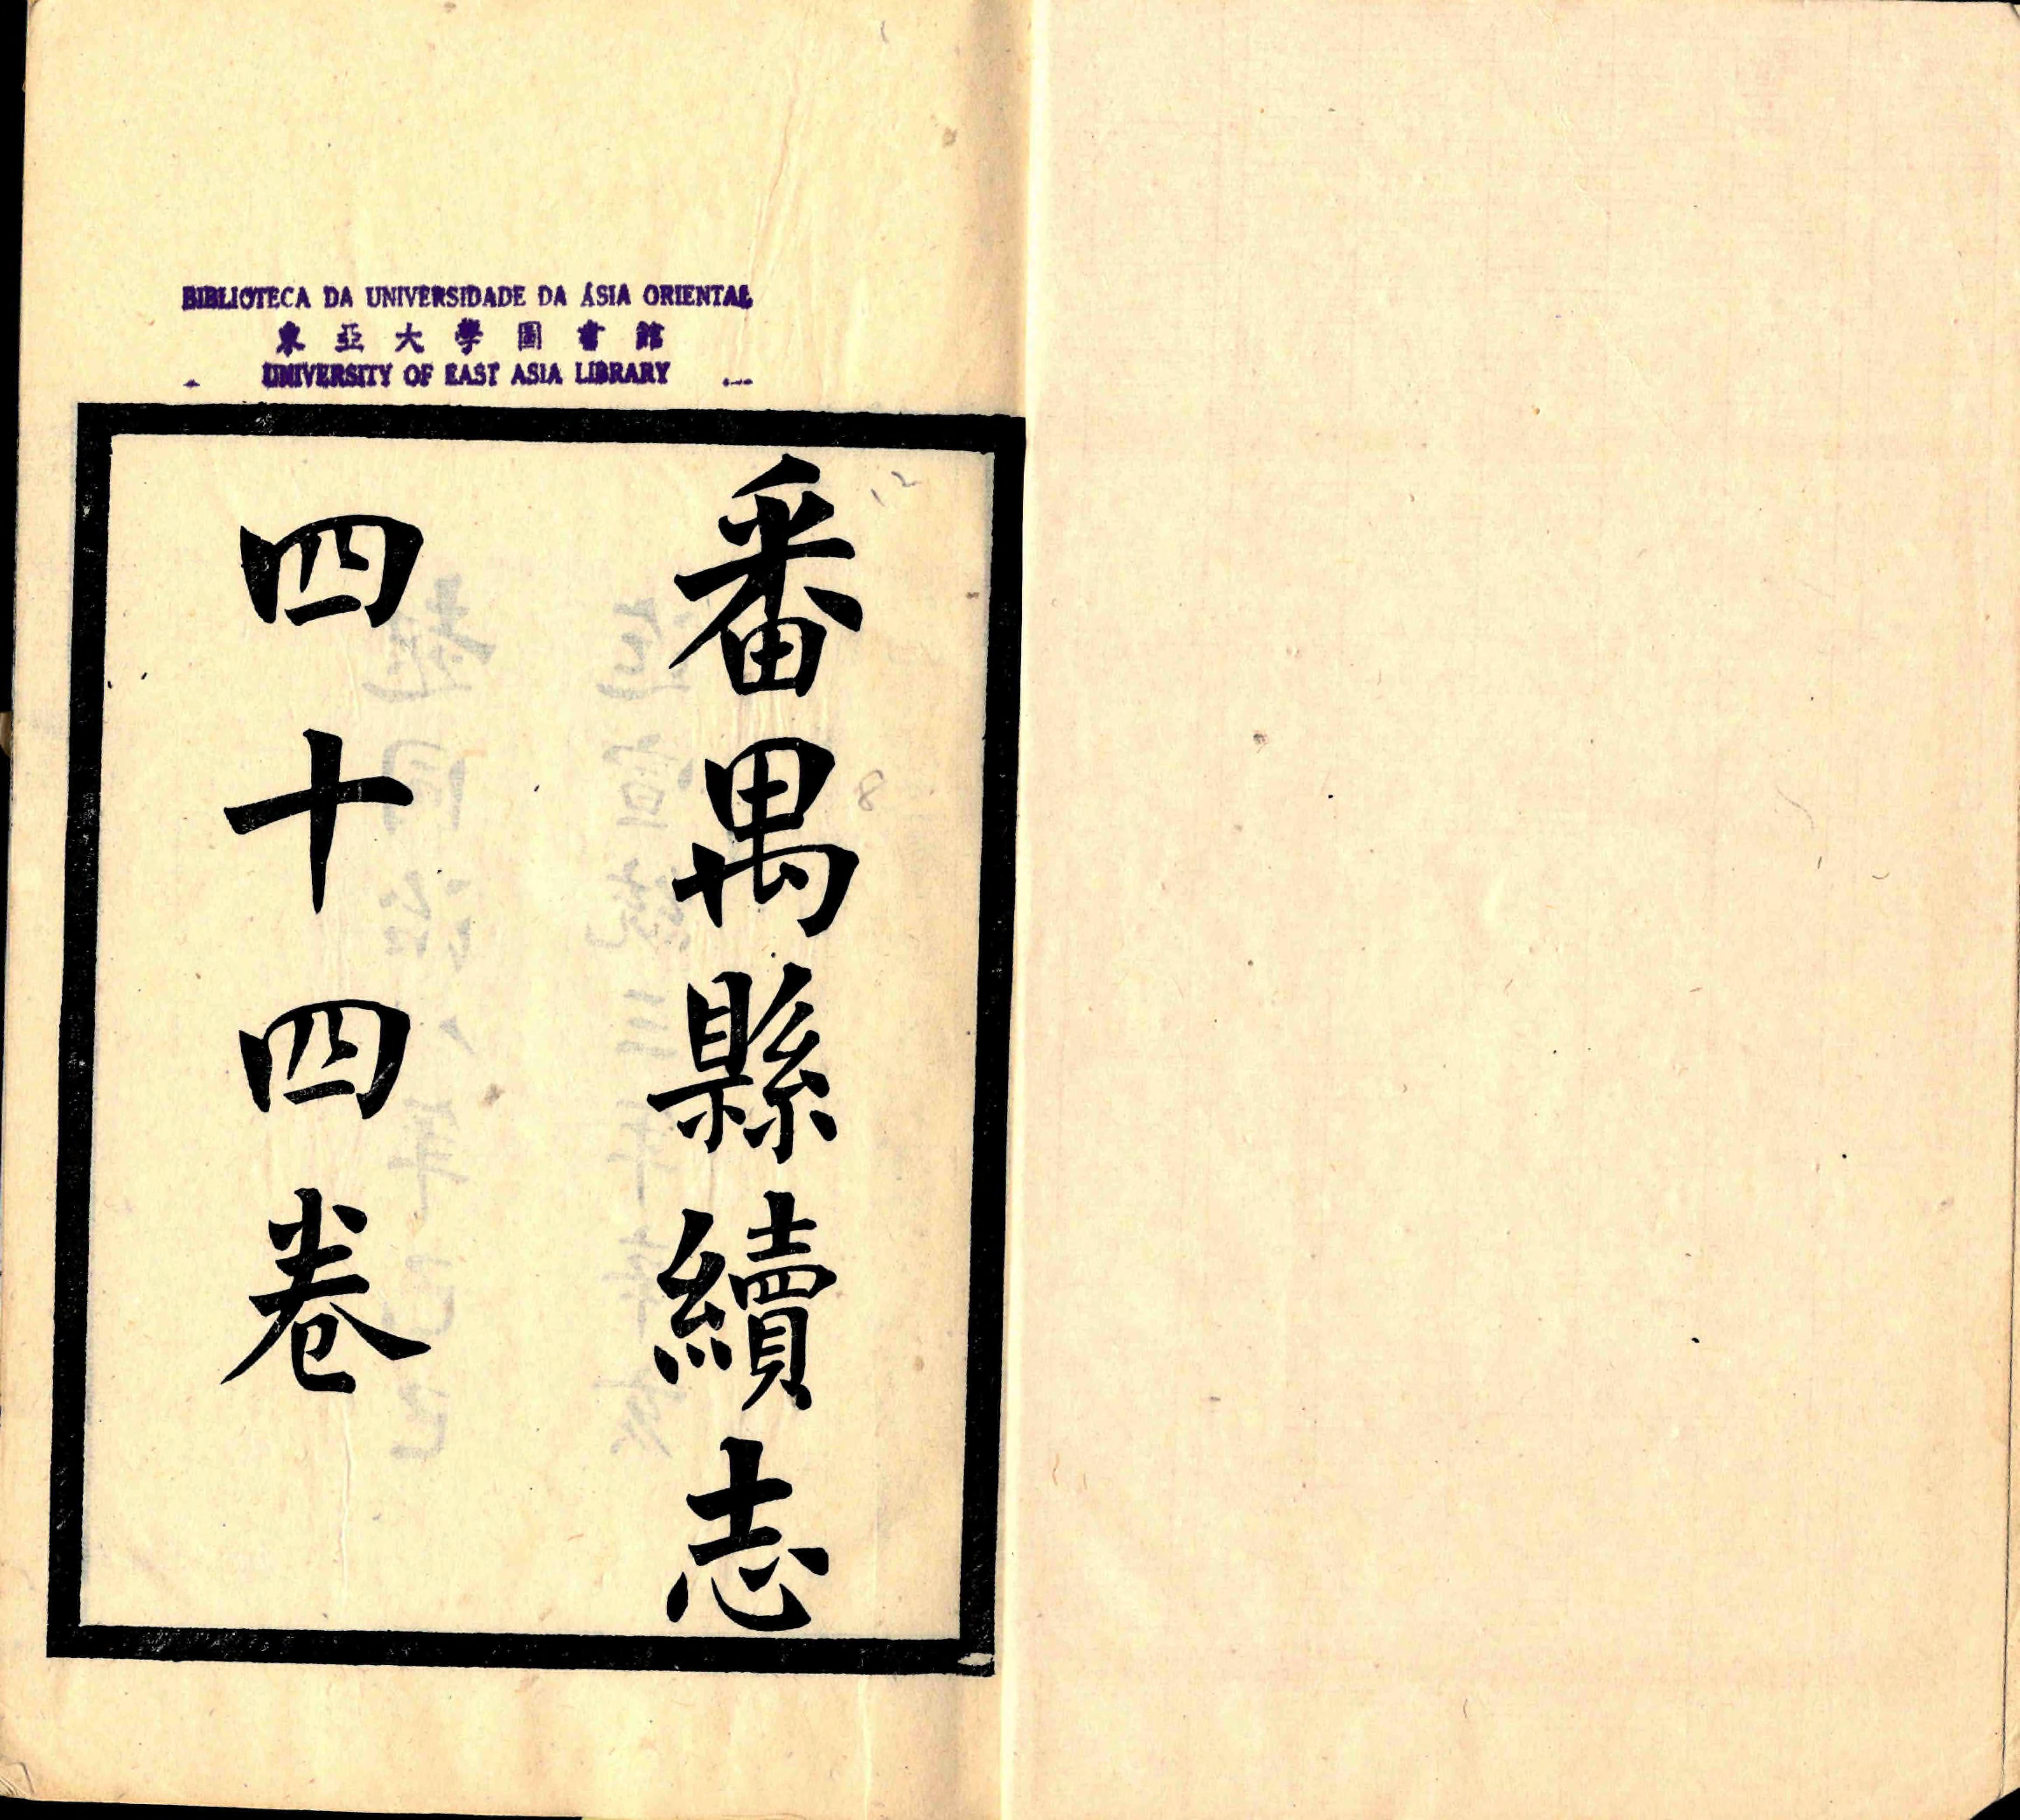 BIBLIOTECA DA UNIVERSIDADE DA ÁSIA ORIENTAL
東亞大學圖書館
UNIVERSITY OF EAST ASIA LIBRARY
番禺縣續志
四十四卷
12
8